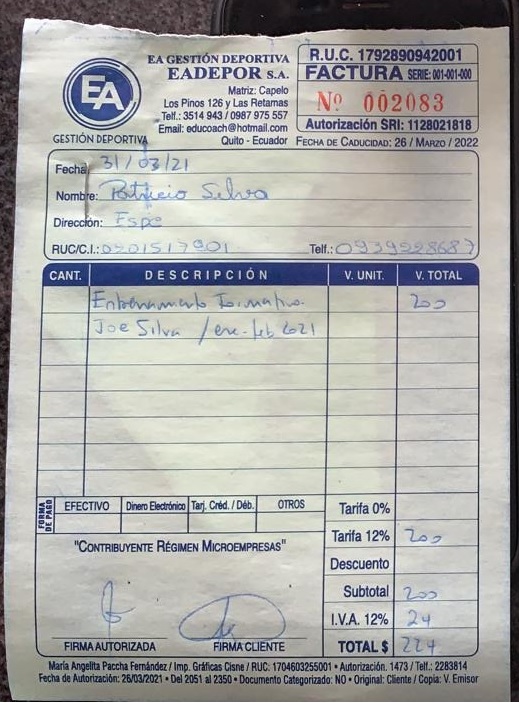 EA
GESTIÓN DEPORTIVA
EA GESTIÓN DEPORTIVA
EADEPOR S.A.
Matriz: Capelo
Los Pinos 126 y Las Retamas
Telf.: 3514 943 / 0987 975 557
Email: educoach@hotmail.com
Quito - Ecuador
R.U.C. 1792890942001
FACTURA SERIE: 001-001-000
Nº 002083
Autorización SRI: 1128021818
FECHA DE CADUCIDAD: 26 / MARZO / 2022
Fecha: 31/03/21
Nombre: Patricio Silva
Dirección: Espe
RUC/C.I.: 0201517901 Telf.: 0939928687
CANT. DESCRIPCIÓN V. UNIT. V. TOTAL
Entrenamiento Formativo. 200
Joe Silva / ene-feb 2021
FORMA DE PAGO
EFECTIVO Dinero Electrónico Tarj. Créd. / Déb. OTROS
"CONTRIBUYENTE RÉGIMEN MICROEMPRESAS"
FIRMA AUTORIZADA FIRMA CLIENTE
Tarifa 0%
Tarifa 12% 200
Descuento
Subtotal 200
I.V.A. 12% 24
TOTAL $ 224
María Angelita Paccha Fernández / Imp. Gráficas Cisne / RUC: 1704603255001 • Autorización. 1473 / Telf.: 2283814
Fecha de Autorización: 26/03/2021 • Del 2051 al 2350 • Documento Categorizado: NO • Original: Cliente / Copia: V. Emisor